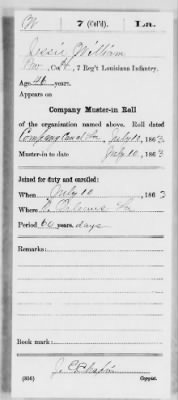 W 7 (Col'd). La.
Jessie William
Co. H, 7 Reg't Louisiana Infantry.
Age 46 years.
Appears on
Company Muster-in Roll
of the organization named above. Roll dated
Company Canal La, July 10, 1863.
Muster-in to date July 10, 1863
Joined for duty and enrolled:
When July 10, 1863
Where N. Orleans La
Period 60 years. days
Remarks:
Book mark:
J. C. Chapin
(356) Copyist.